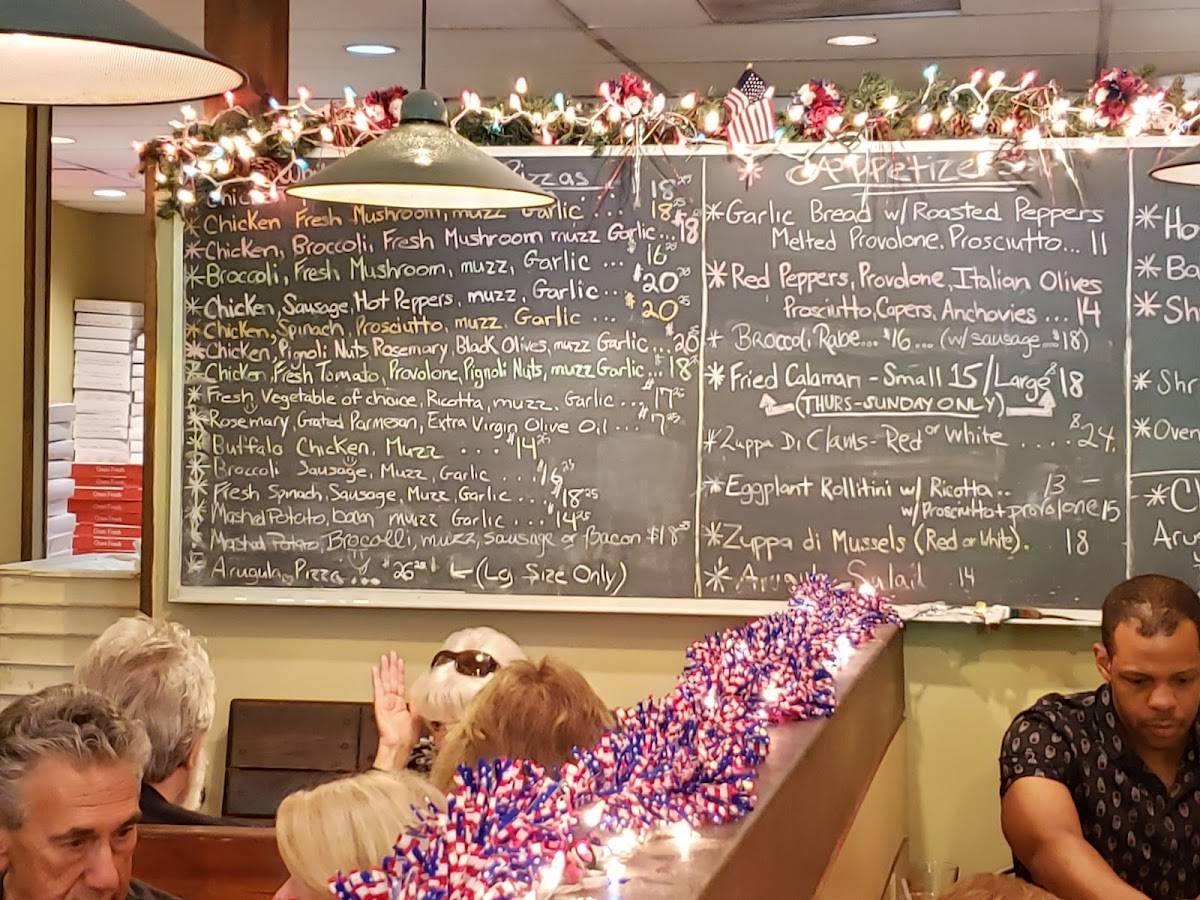 Pizzas
18 25
*Chicken Fresh Mushroom, muzz Garlic ... 18 25
*Chicken, Broccoli, Fresh Mushroom muzz Garlic... $18
*Broccoli, Fresh Mushroom, muzz, Garlic ... $16 25
*Chicken, Sausage, Hot Peppers, muzz, Garlic ... $20
*Chicken, Spinach, Prosciutto, muzz. Garlic ... $20 25
*Chicken, Pignoli Nuts Rosemary, Black Olives, muzz Garlic... 20 25
*Chicken, Fresh Tomato, Provolone, Pignoli Nuts, muzz Garlic... 18
*Fresh Vegetable of choice, Ricotta, muzz, Garlic ... $17 25
*Rosemary, Grated Parmesan, Extra Virgin Olive Oil ... $17 25
*Buffalo Chicken, Muzz ... $14 25
*Broccoli Sausage, Muzz, Garlic ... $16 25
*Fresh Spinach, Sausage, Muzz, Garlic ... $18 25
*Mashed Potato, bacon muzz Garlic ... $14 25
*Mashed Potato, Brocolli, muzz, sausage or bacon $18
*Arugula Pizza ... $26 25 (Lg Size Only)
Appetizers
*Garlic Bread w/ Roasted Peppers
Melted Provolone, Prosciutto... 11
*Red Peppers, Provolone, Italian Olives
Prosciutto, Capers, Anchovies ... 14
*Broccoli Rabe... $16 ... (w/ sausage $18)
*Fried Calamari - Small 15 / Large $18
(THURS-SUNDAY ONLY)
*Zuppa Di Clams - Red or White .... $24.
*Eggplant Rollitini w/ Ricotta .. 13 -
w/ Prosciutto + provolone 15
*Zuppa di Mussels (Red or White). 18
*Arugula Salad 14
*Ho
*Ba
*Sh
*Shr
*Oven
*C
Aru